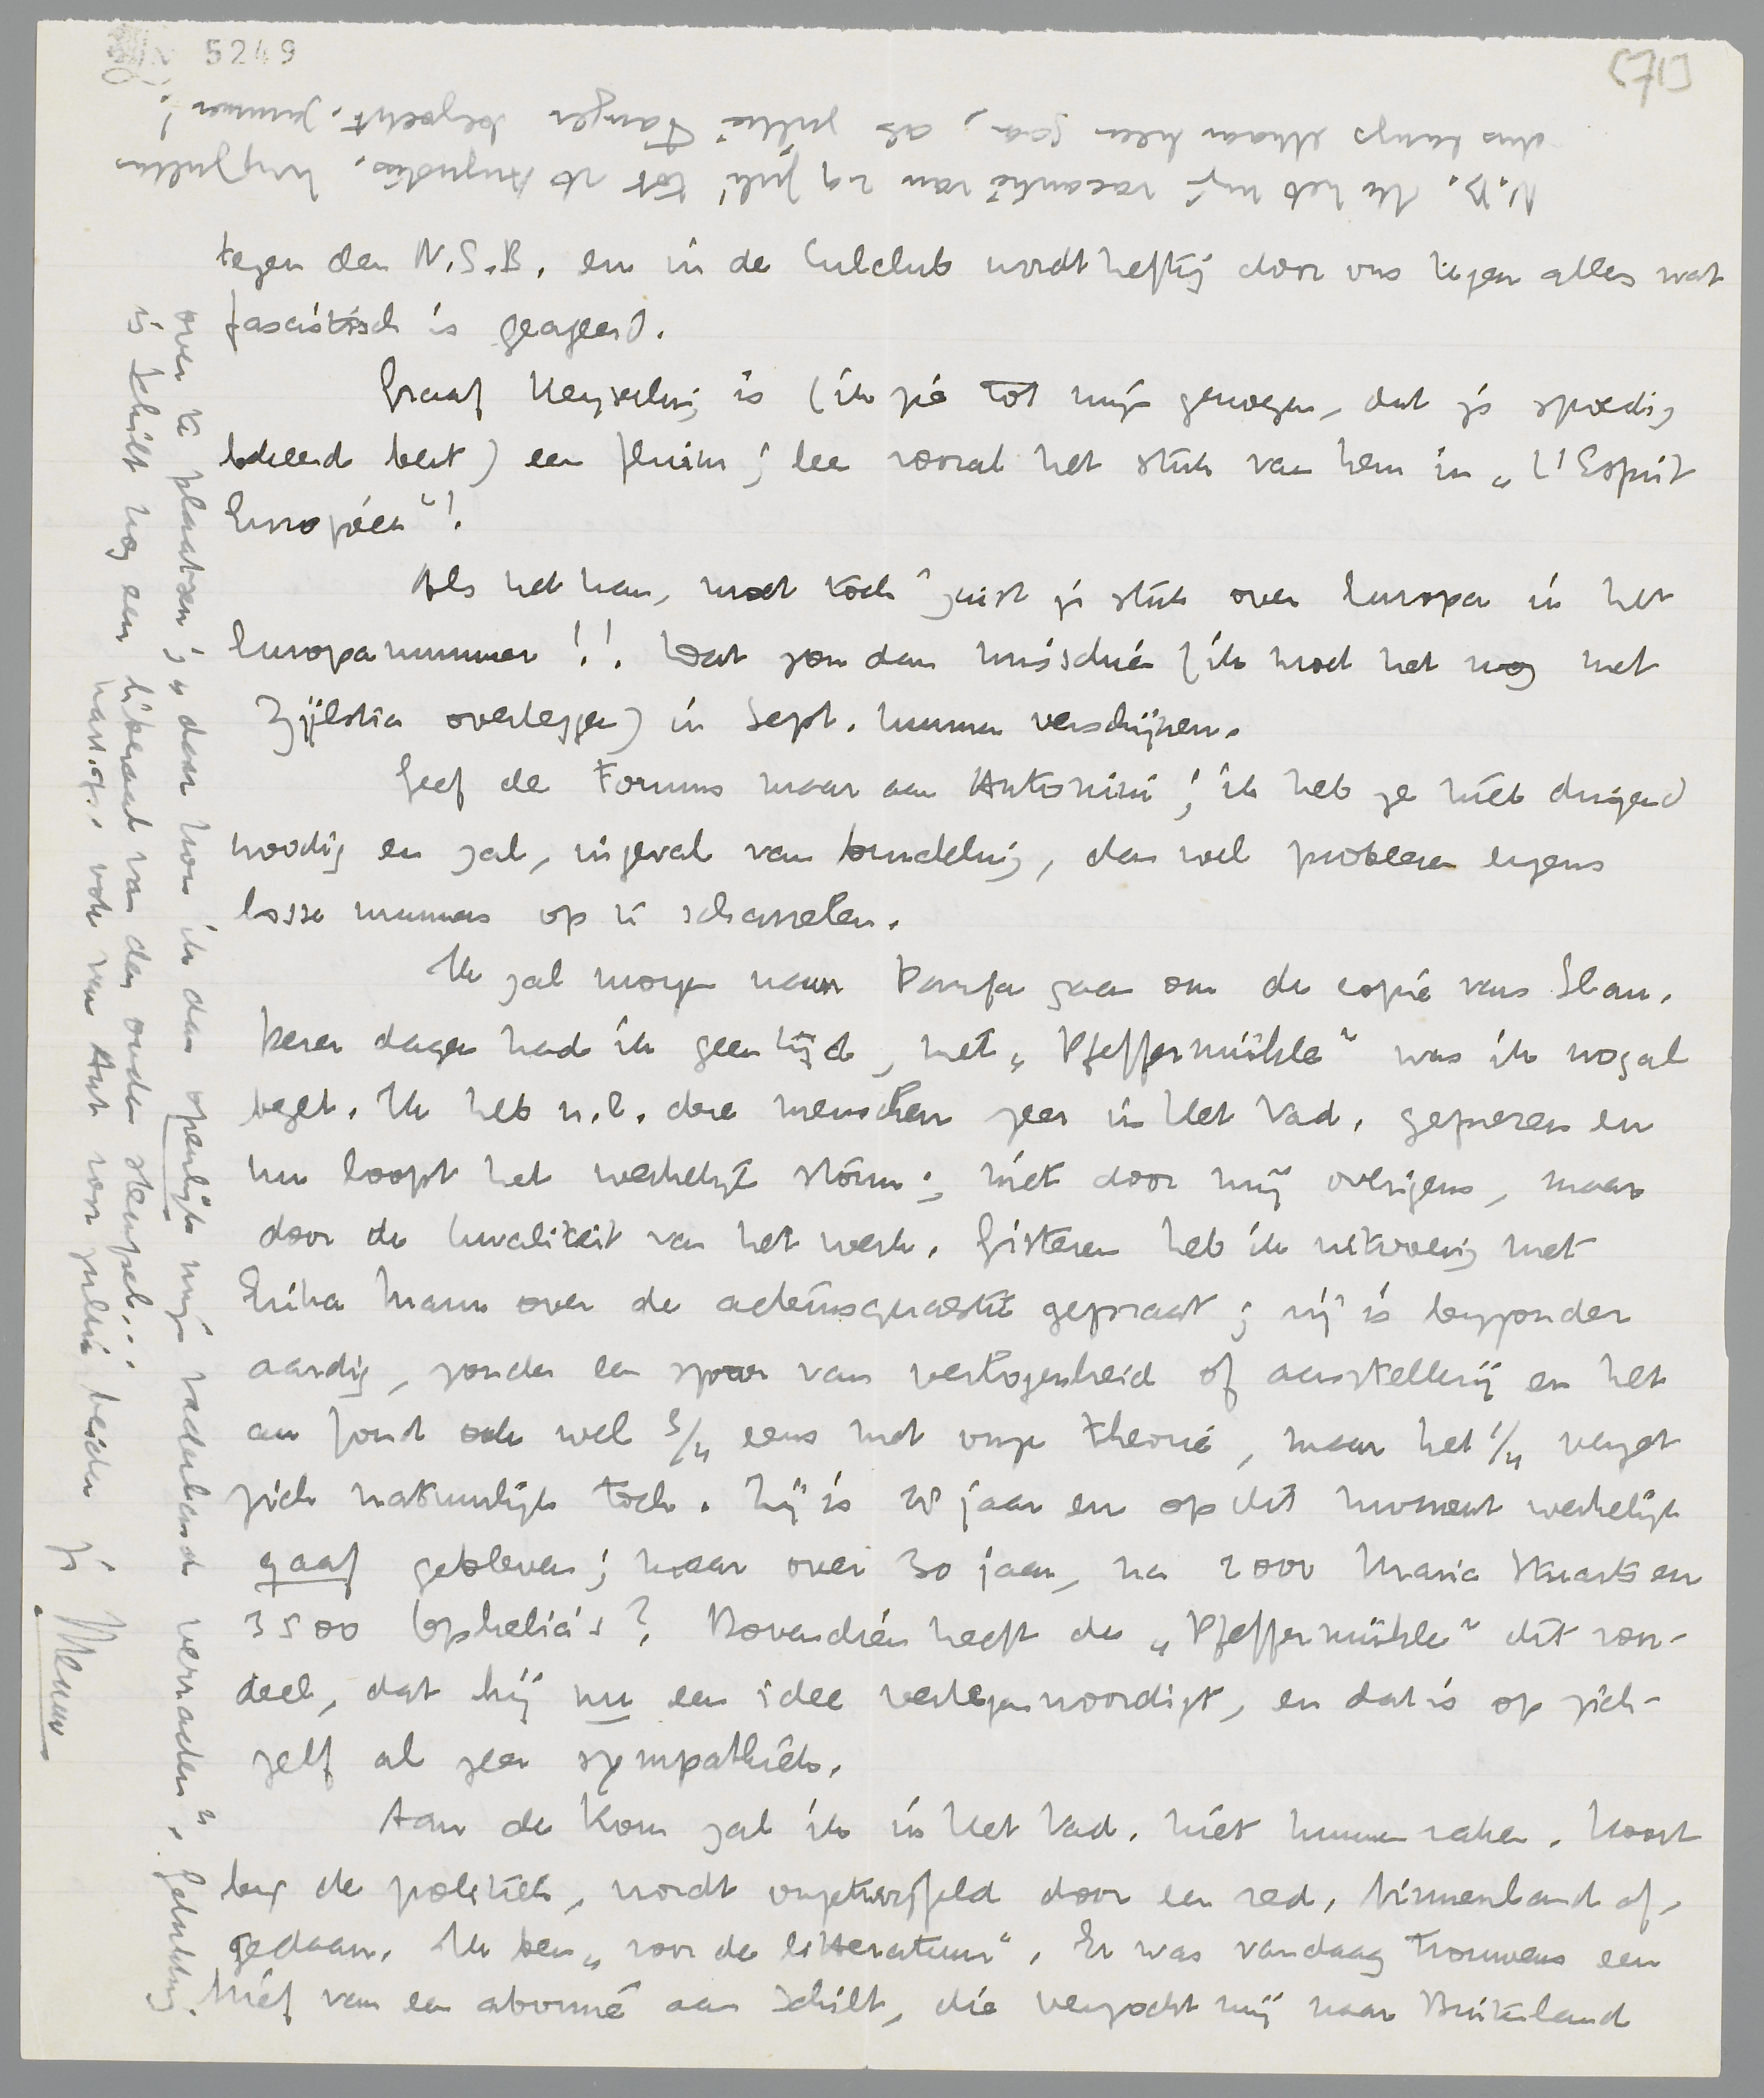 5249
[71]
tegen den N.S.B. en in de Culclub wordt heftig door ons tegen alles wat
fascistisch is geageerd.
Graaf Keyserling is (ik zie tot mijn genoegen, dat je spoedig
bekeerd bent) een fluim; lees vooral het stuk van hem in „L'Esprit
Européen"!
Als het kan, moet toch juist je stuk over Europa in het
Europanummer!! Wat zou dan misschien (ik moet het nog met
Zijlstra overleggen) in Sept. nummer verschijnen.
Geef de Forums maar aan Antonini; ik heb ze niet dringend
noodig en zal, ingeval van bundeling, dan wel probleren ergens
losse nummers op te scharrelen.
Ik zal morgen naar Pampa gaan om de copie van Slau.
Dezer dagen had ik geen tijd, met „Pfeffermühle" was ik nogal
bezet. Ik heb n.l. deze menschen zeer in Het Vad. geprezen en
nu loopt het werkelijk storm; niet door mij overigens, maar
door de kwaliteit van het werk. Gisteren heb ik uitvoerig met
Erika Mann over de acteursquaestie gepraat; zij is bijzonder
aardig, zonder een spoor van verlogenheid of aanstellerij en het
au fond ook wel 3/4 eens met onze theorie, maar het 1/4 verzet
zich natuurlijk toch. Zij is 28 jaar en op dit moment werkelijk
gaaf gebleven; maar over 30 jaar, na 2000 Maria Stuarts en
3500 Ophelia's? Bovendien heeft de „Pfeffermühle" dit voor-
deel, dat hij nu een idee vertegenwoordigt, en dat is op zich-
zelf al zeer sympathiek.
Aan de Kom zal ik in Het Vad. niet kunnen raken. Hoort
bij de politiek, wordt ongetwijfeld door een red. binnenland af-
gedaan. Ik ben „voor de litteratuur". Er was vandaag trouwens een
brief van een abonné aan Schilt, die verzocht mij naar Duitschland
over te plaatsen; „daar kon ik dan openlijk mijn vaderland verraden". Gelukkig
is Schilt nog een liberaal van den ouden stempel...
hart. gr., ook van Ant voor jullie beiden je
Menno
N.B. Ik heb mijn vacantie van 29 Juli tot 18 Augustus. Wij zullen
dus langs elkaar heen gaan, als jullie Tanger bezoekt. Jammer!